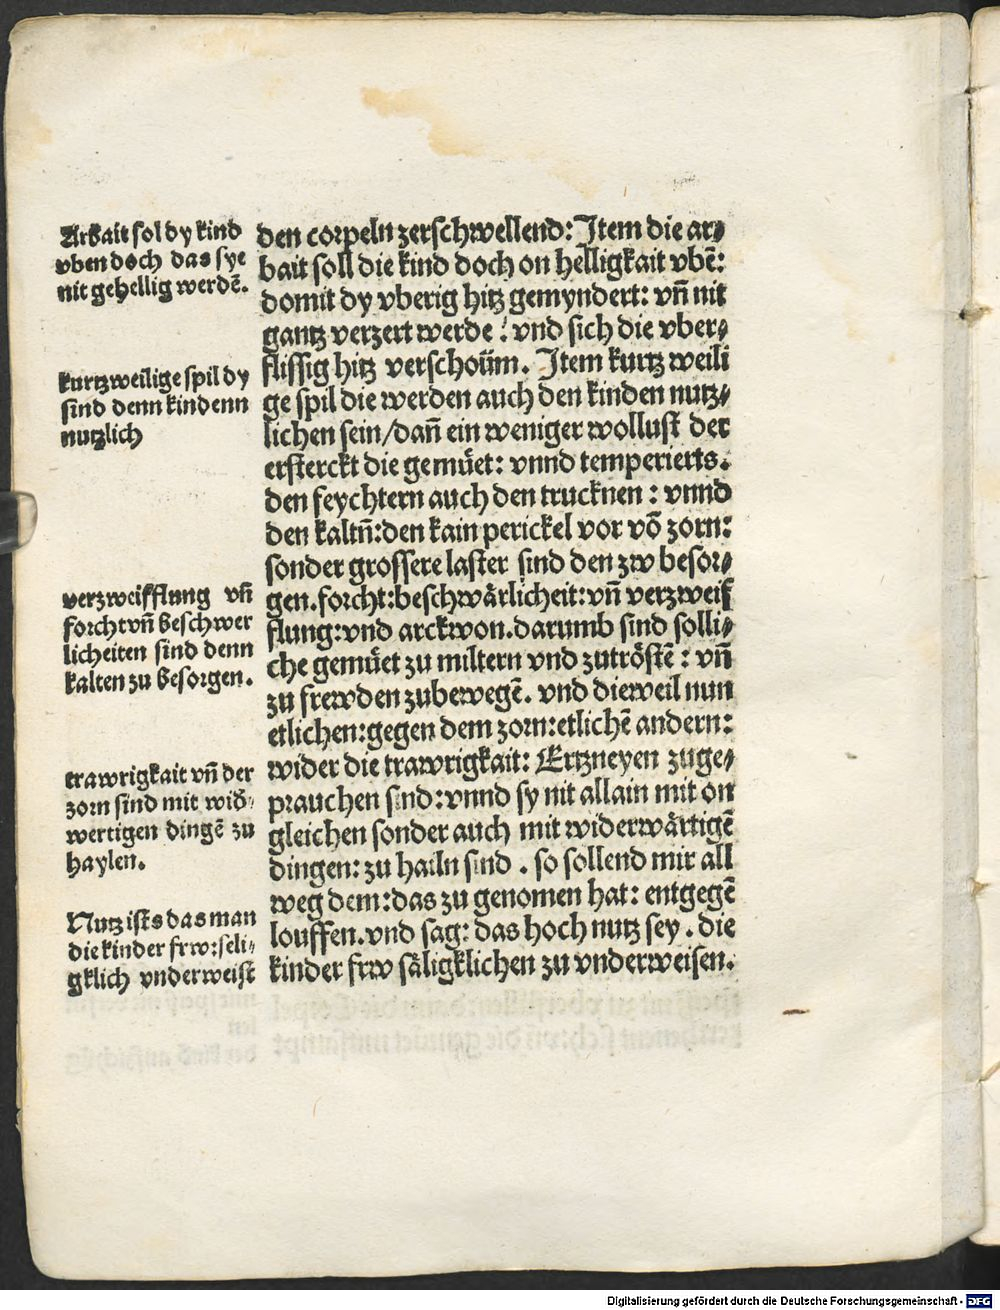 Arbait sol dy kind
vben doch das sye
nit gehellig werdē.
kurtzweilige spil dy
sind denn kindenn
nutzlich
verzweifflung vñ
forcht vñ beschwer
licheiten sind denn
kalten zu besorgen.
trawrigkait vñ der
zorn sind mit wid⸗
wertigen dingē zu
haylen.
Nutz ists das man
die kinder frw: seli⸗
gklich vnderweist
den corpeln zerschwellend: Item die ar⸗
bait soll die kind doch on helligkait vbē:
domit dy vberig hitz gemyndert: vñ nit
gantz verzert werde: vnd sich die vber⸗
flissig hitz verschoūm. Item kurtz weili
ge spil die werden auch den kinden nutz⸗
lichen sein/dañ ein weniger wollust der
ersterckt die gemüet: vnnd temperierts.
den feychtern auch den trucknen: vnnd
den kaltñ: den kain perickel vor võ zorn:
sonder grossere laster sind den zw besor⸗
gen. forcht: beschwärlicheit: vñ verzweif
flung: vnd arckwon. darumb sind solli⸗
che gemüet zu miltern vnd zutröstē: vñ
zu frewden zubewegē. vnd dieweil nun
etlichen: gegen dem zorn: etlichē andern:
wider die trawrigkait: Ertzneyen zuge⸗
prauchen sind: vnnd sy nit allain mit on
gleichen sonder auch mit widerwärtigē
dingen: zu hailn sind. so sollend mir all
weg dem: das zu genomen hat: entgegē
louffen. vnd sag: das hoch nutz sey. die
kinder frw säligklichen zu vnderweisen.
Digitalisierung gefördert durch die Deutsche Forschungsgemeinschaft - DFG